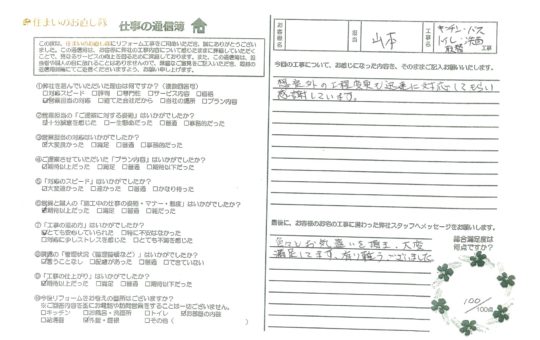 住まいのお直し隊
仕事の通信簿
この度は、住まいのお直し隊にリフォーム工事をご用命いただき、誠にありがとうござい
ました。この通信簿は、お客様に弊社の工事内容について感じられたままに評価していただく
①弊社を選んでいただいた理由は何ですか?(複数回答可)
□対応スピード □専門 □サービス内容 □価格
☑営業担当の対応 □建てた会社だから □会社の場所 □プラン内容
②営業担当の「ご提案に対する姿勢」はいかがでしたか?
☑十分誠意を感じた □一生懸命だった □普通 □事務的だった
③営業担当の対応はいかがでしたか?
☑大変良かった □満足 □普通 □事務的だった
④ご提案させていただいた「プラン内容」はいかがでしたか?
☑期待以上だった □満足 □普通 □期待以下だった
⑤「対応のスピード」はいかがでしたか?
☑大変速かった □速かった □普通 □かなり待った
⑥職人の「施工中の仕事の姿勢・マナー・態度」はいかがでしたか?
☑期待以上だった □満足 □普通 □期待以下だった
⑦「工事の進め方」はいかがでしたか?
☑とても安心していられた □特に不安はなかった
□対応に少しストレスを感じた □とても不満を感じた
⑧現場の「管理状況(整理整頓など)」はいかがでしたか?
☑言うことなし □配慮があった □普通 □できていない
⑨「工事の仕上がり」はいかがでしたか?
☑期待以上だった □満足 □普通 □期待以下だった
⑩今後リフォームをお考えの箇所はございますか?
□キッチン □お風呂・洗面所 □トイレ ☑お部屋の内装
□給湯器 ☑外壁・屋根 □その他( )
お客様名
担当
山本
工事名
キッチン・バス
トイレ・洗面
工事
今回の工事について、お感じになった内容を、そのままご記入お願いいたします。
想定外の工程変更も迅速に対応してもらい
感謝しています。
最後に、お客様のお宅の工事に携わった弊社スタッフへメッセージをお願いします。
色々とお気遣いを頂き、大変
満足してます。有り難うございました
総合満足度は
何点ですか?
100/100点